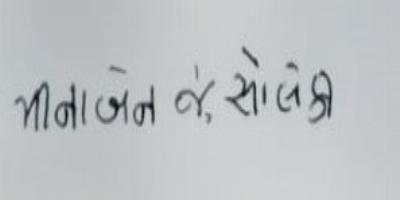 મીનાબેન જે. સોલંકી